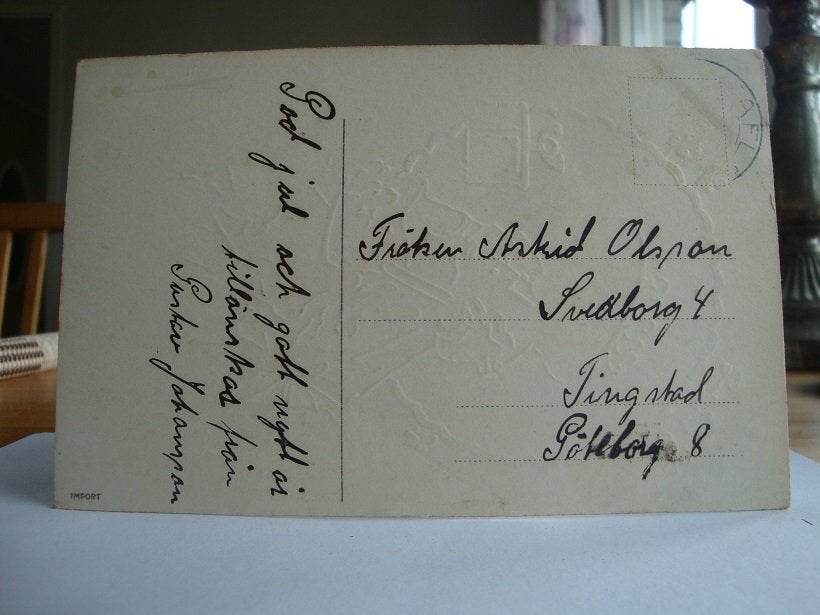 God jul och gott nytt år
tillönskas från
Gustav Johansson
Fröken Astrid Olsson
Svedborg 4
Tingstad
Göteborg 8
IMPORT
AFLA